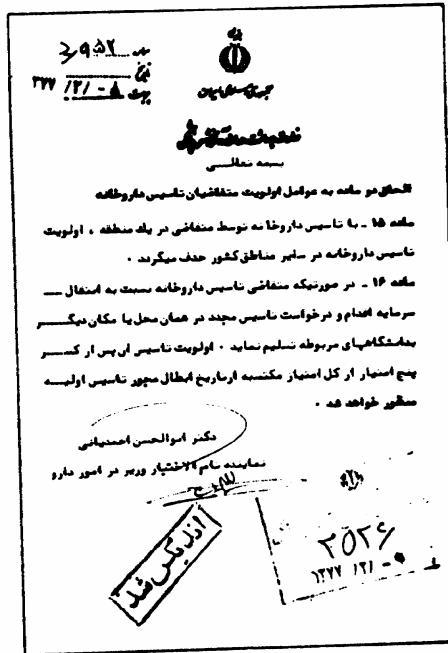 جمهوری اسلامی ایران
بسمه تعالی
الحاق دو ماده به عوامل اولویت متقاضیان تاسیس داروخانه
ماده ۱۵ ـ با تاسیس داروخانه توسط متقاضی در یك منطقه ، اولویت
تاسیس داروخانه در سایر مناطق کشور حذف میگردد .
ماده ۱۶ ـ در صورتیکه متقاضی تاسیس داروخانه نسبت به انتقال
سرمایه اقدام و درخواست تاسیس مجدد در همان محل یا مکان دیگر
بدانشگاههای مربوطه تسلیم نماید . اولویت تاسیس ان پس از کسر
پنج امتیاز از کل امتیاز مکتسبه ازتاریخ ابطال مجوز تاسیس اولیه
منظور خواهد شد .
دکتر ابوالحسن احمدیانی
نماینده تام الاختیار وزیر در امور دارو